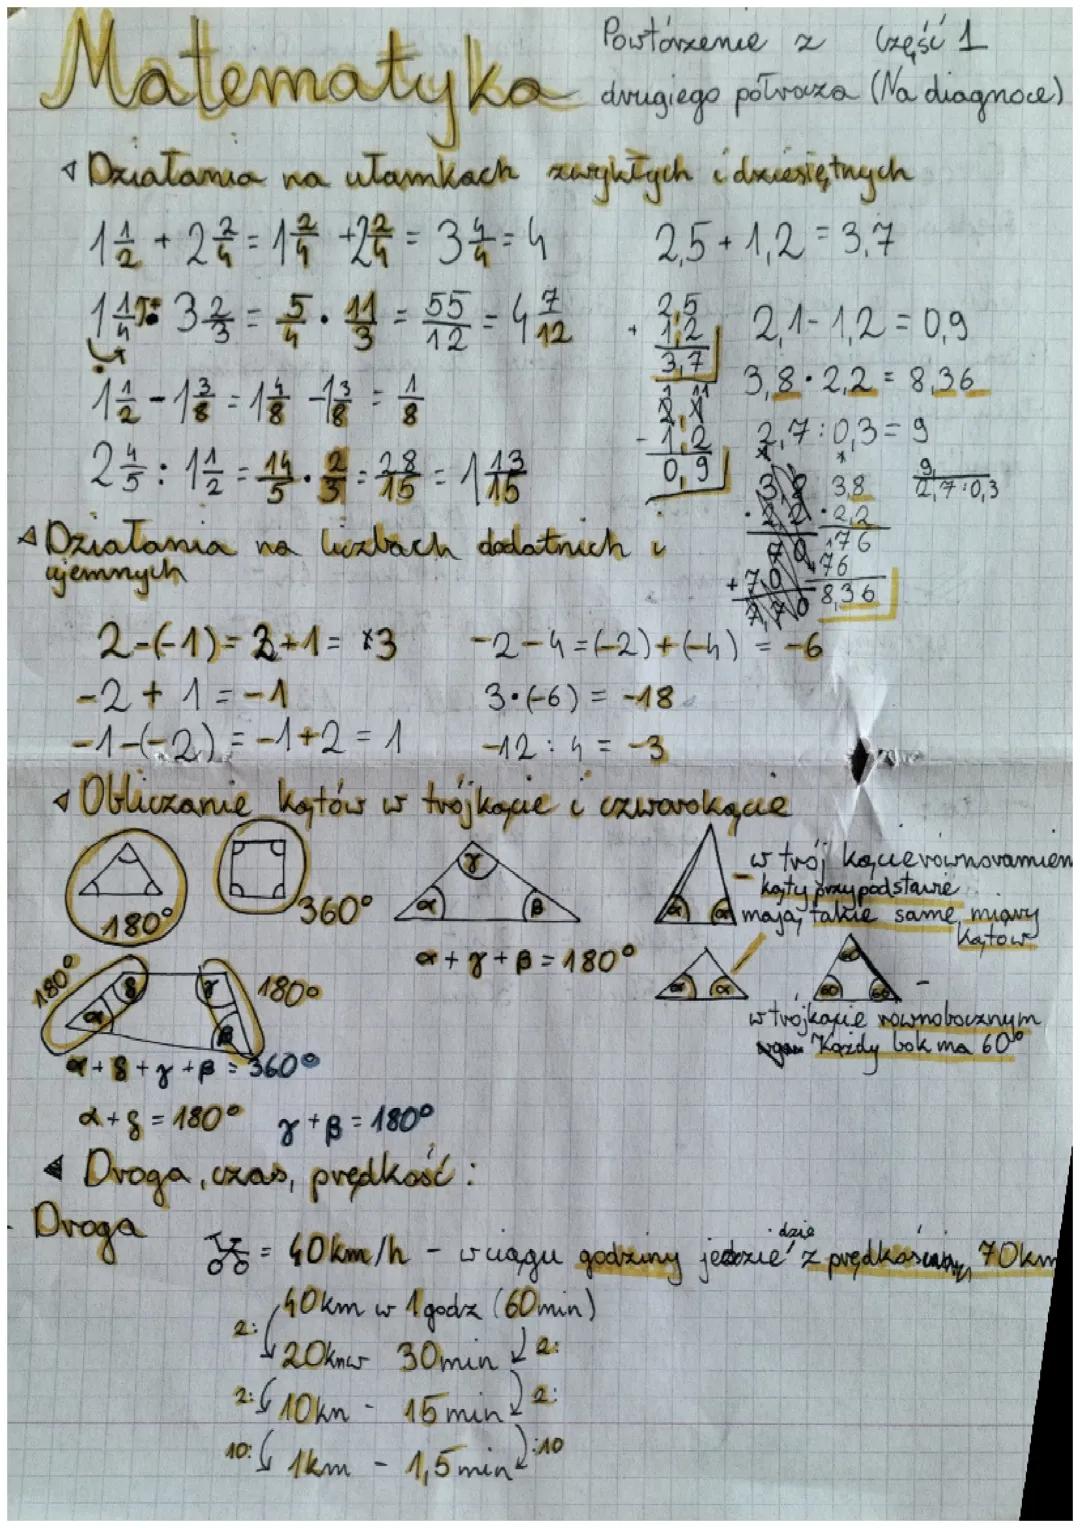 Matematyka
Powtórzenie z Część 1
drugiego półrocza (Na diagnoce)
Działania na ułamkach zwykłych i dziesiętnych
1 1/2 + 2 2/4 = 1 2/4 + 2 2/4 = 3 4/4 = 4
2,5 + 1,2 = 3,7
1 1/4 · 3 2/3 = 5/4 · 11/3 = 55/12 = 4 7/12
2,5
+ 1,2
3,7
2,1 - 1,2 = 0,9
3,8 · 2,2 = 8,36
1 1/2 - 1 3/8 = 1 4/8 - 1 3/8 = 1/8
2,1
- 1,2
0,9
2,7 : 0,3 = 9
2 4/5 : 1 1/2 = 14/5 · 2/3 = 28/15 = 1 13/15
9
2,7:0,3
3,8
· 2,2
176
+ 76
8,36
Działania na liczbach dodatnich i
ujemnych
2-(-1) = 2+1 = 3
-2-4 = (-2)+(-4) = -6
-2 + 1 = -1
3·(-6) = -18
-1-(-2) = -1+2 = 1
-12 : 4 = -3
Obliczanie kątów w trójkącie i czworokącie
180°
360°
α γ β
α + γ + β = 180°
α α
- w trójkącie równoramien
kąty przy podstawie
mają takie same miary
kątów
180°
α δ γ β
180°
α + δ + γ + β = 360°
α + δ = 180° γ + β = 180°
α α
60 60 60
-
w trójkącie równobocznym
Każdy bok ma 60°
Droga, czas, prędkość:
Droga
= 40km/h - w ciągu godziny jedzie z prędkością 70km
40km w 1 godz (60min)
2: 20km w 30min 2:
2: 10km - 15min 2:
10: 1km - 1,5min :10